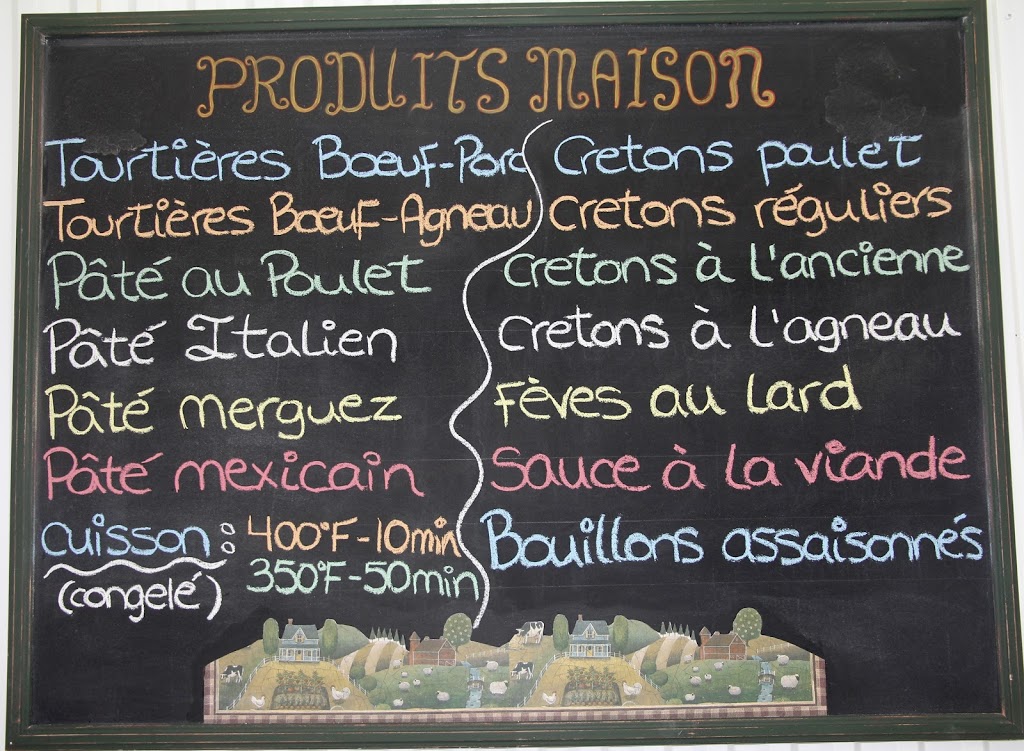 PRODUITS MAISON
Tourtières Boeuf-Porc
Tourtières Boeuf-Agneau
Pâté au Poulet
Pâté Italien
Pâté merguez
Pâté mexicain
cuisson :
(congelé)
400°F-10min
350°F-50min
Cretons poulet
Cretons réguliers
Cretons à l'ancienne
Cretons à l'agneau
Fèves au lard
Sauce à la viande
Bouillons assaisonnés